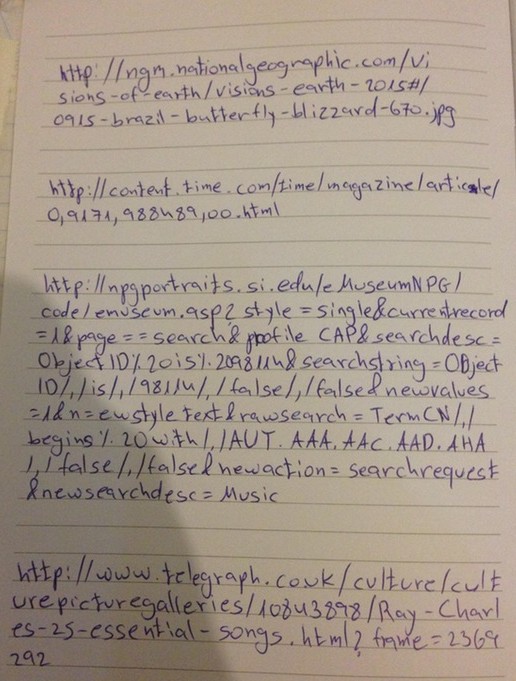 http://ngm.nationalgeographic.com/vi
sions-of-earth/visions-earth-2015#/
0915-brazil-butterfly-blizzard-670.jpg
http://content.time.com/time/magazine/article/
0,9171,988489,00.html
http://npgportraits.si.edu/eMuseumNPG/
code/emuseum.asp?style=single&currentrecord
=1&page==search&profile CAP&searchdesc=
Object ID%20is%2098114&searchstring=OBject
ID/,/is/,/98114/,/false/,/false&newvalues
=1&n=ewstyle text&rawsearch=TermCN/,/
begins%20with/,/AUT.AAA.AAC.AAD.AHA
/,/false/,/false&newaction=searchrequest
&newsearchdesc=Music
http://www.telegraph.co.uk/culture/cult
urepicturegalleries/10843898/Ray-Charl
es-25-essential-songs.html?frame=2369
292